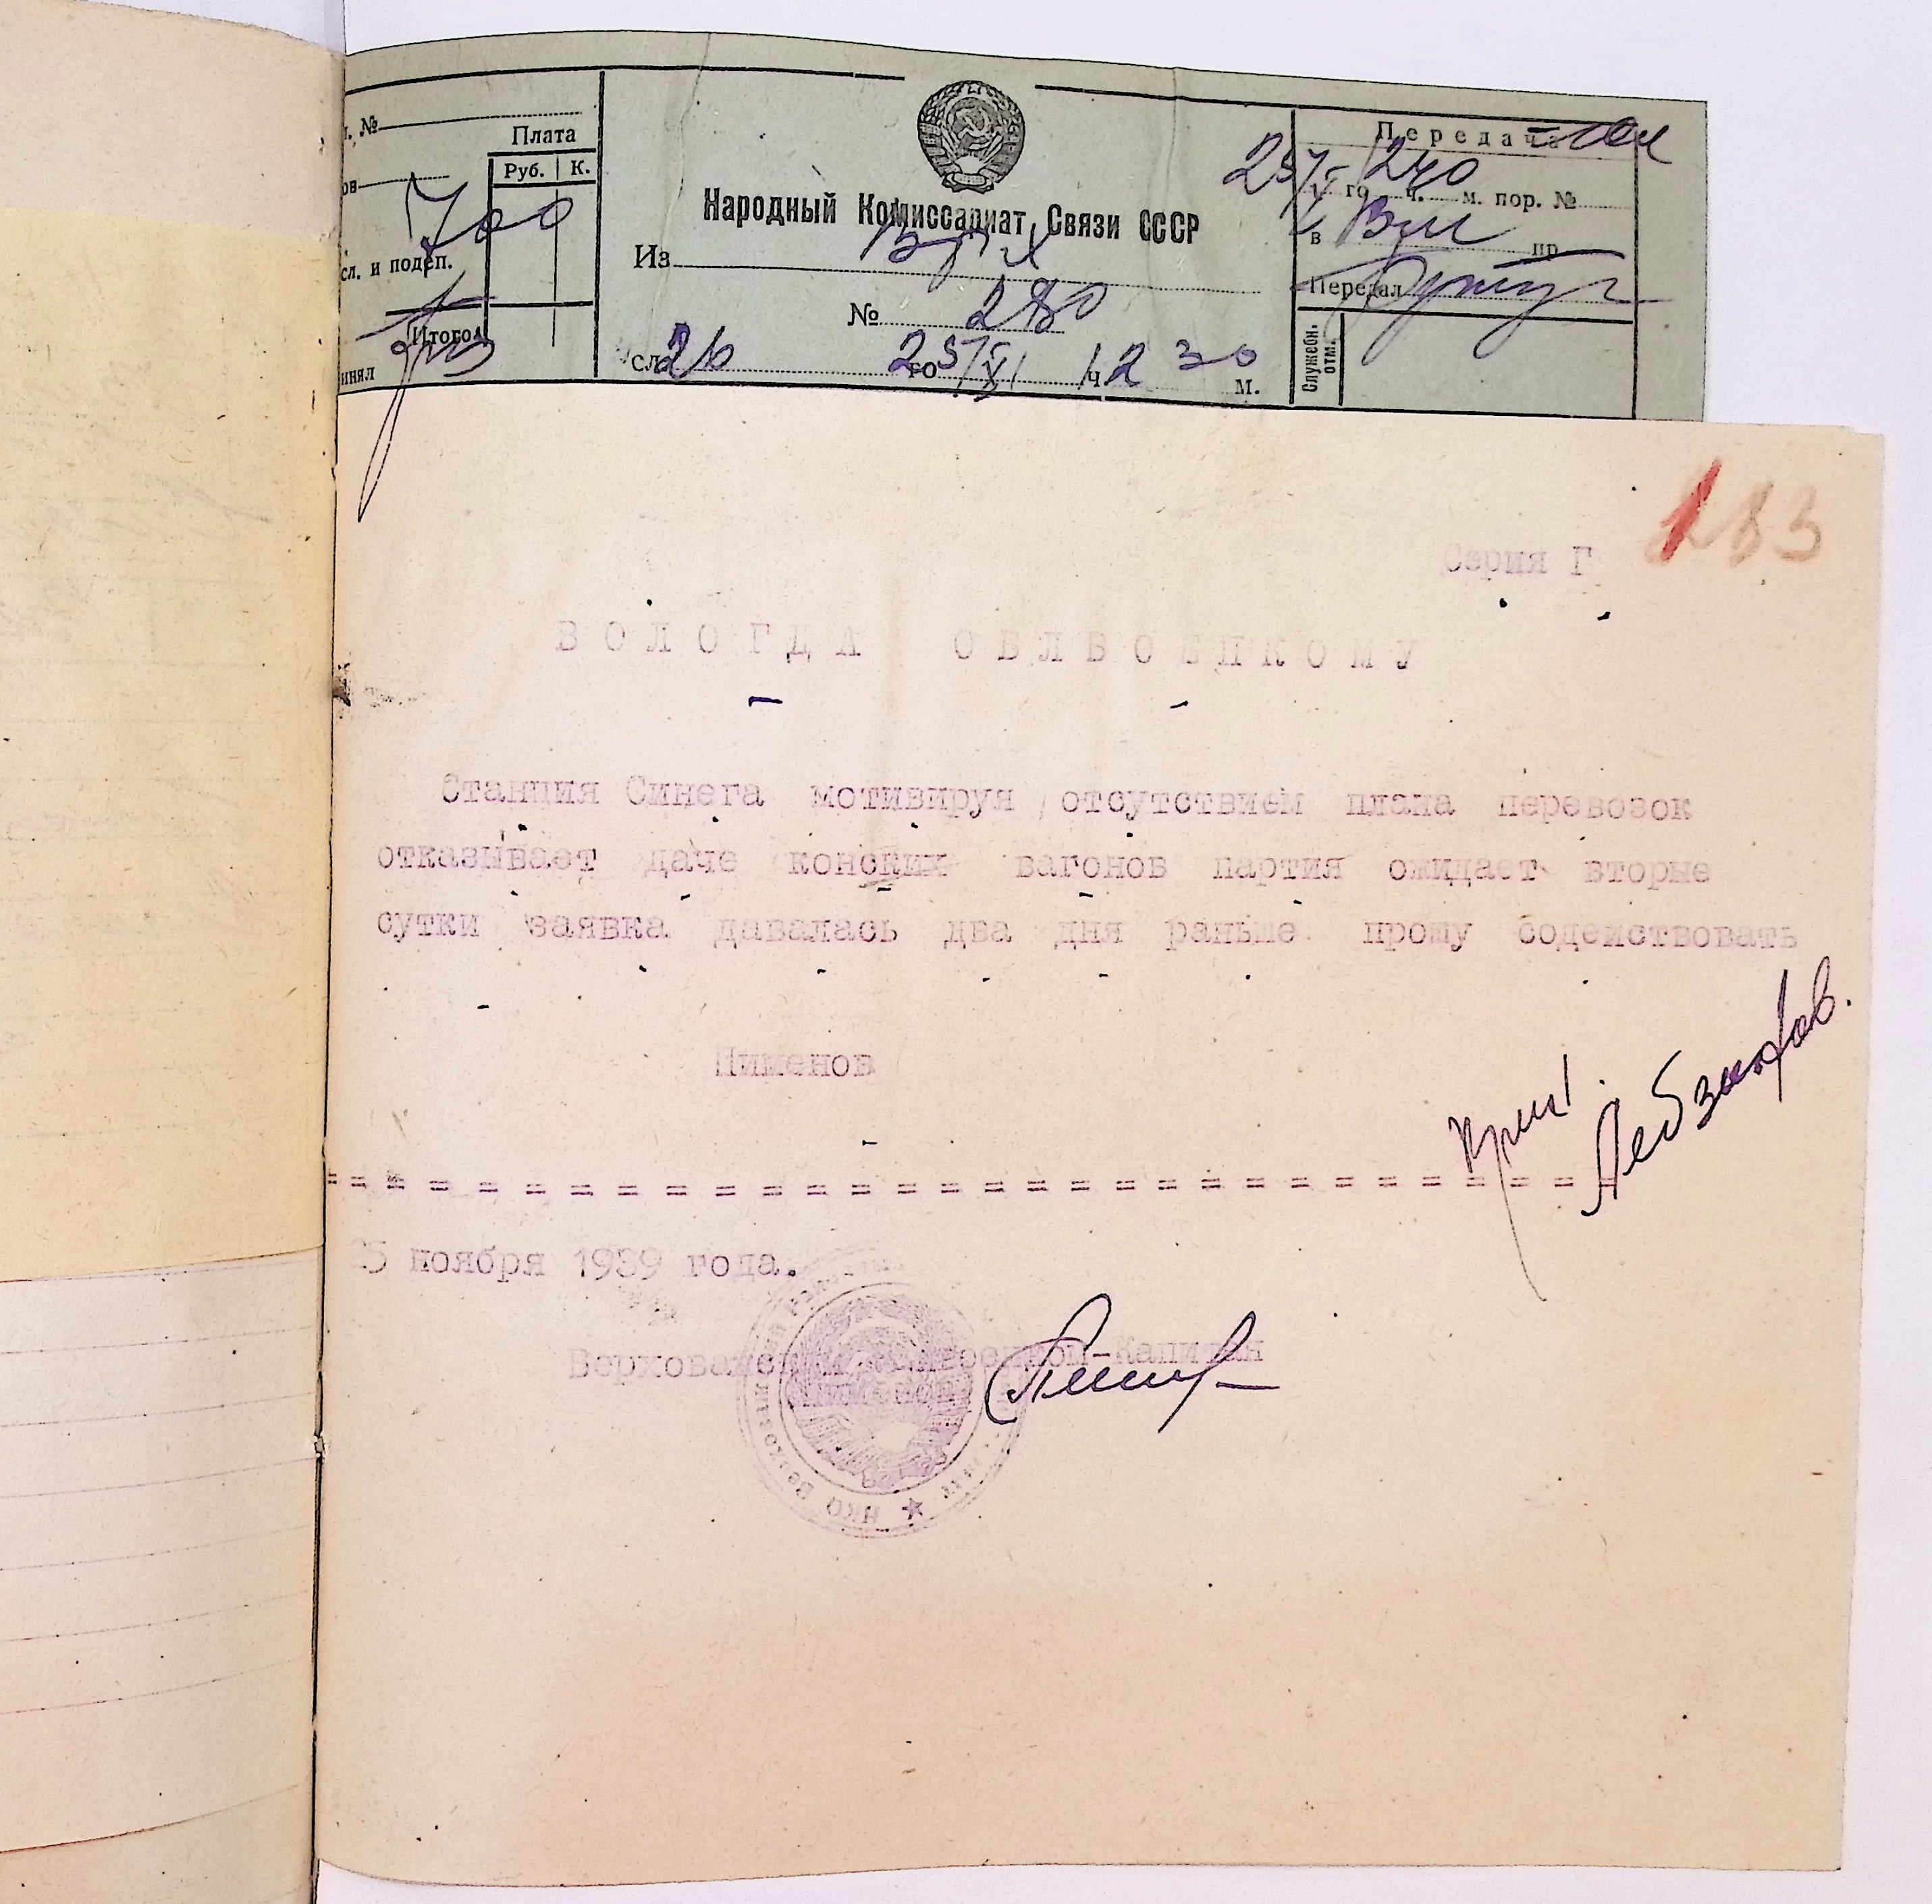 Плата
Руб. К.
700
сл. и подсп.
Итого
Народный Комиссариат Связи СССР
Из
№ 280
сл 26 го 25/XI ч 12 30 м.
Передача
25/XI го 240 ч. м. пор. №
в пр
Передал
Служебн. отм.
183
Серия Г
ВОЛОГДА ОБЛВОЕНКОМУ
Станция Синега мотивируя отсутствием плана перевозок
отказывает даче конских вагонов партия ожидает вторые
сутки заявка давалась два дня раньше прошу содействовать
Пименов
25 ноября 1939 года.
Верховажский Райвоенком-Капитан